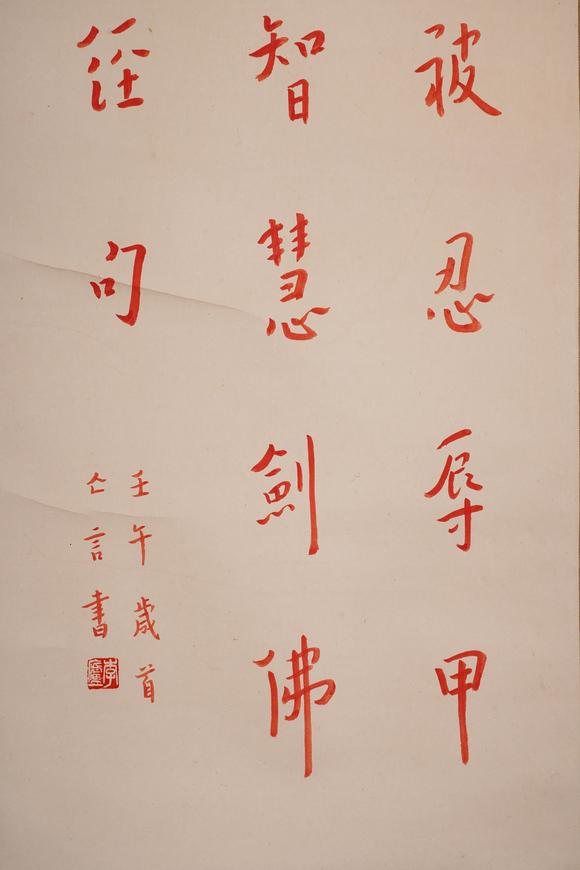 被忍辱甲
智慧劍佛
經句
壬午歲首
亡言書